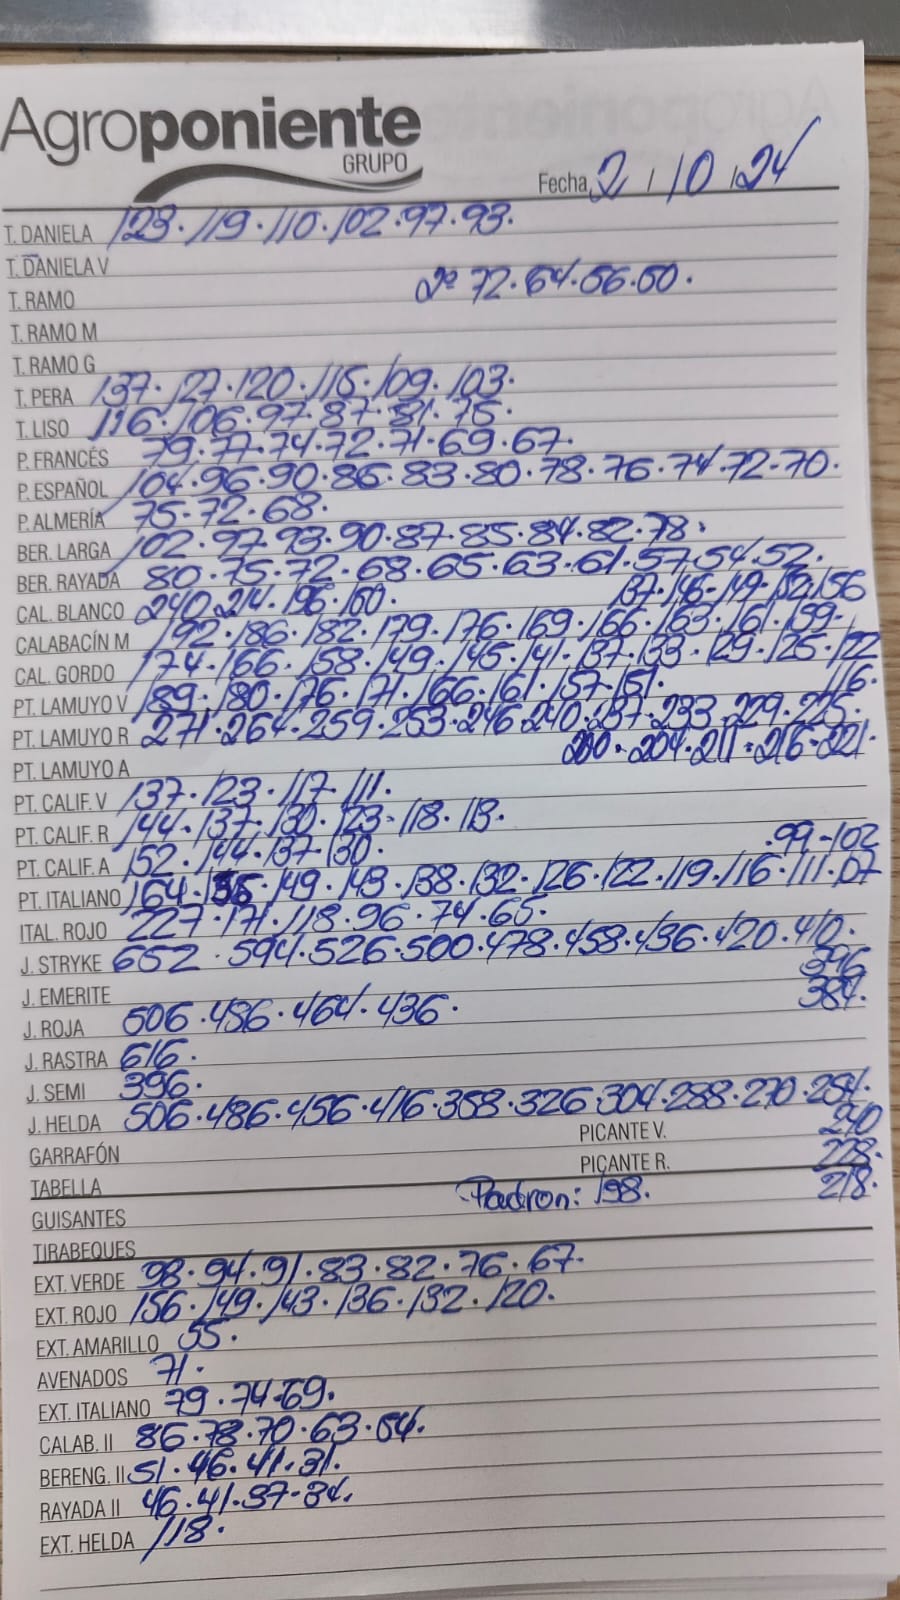 Agroponiente
GRUPO
Fecha 2 / 10 / 24
T. DANIELA 123 · 119 · 110 · 102 · 97 · 93.
T. DANIELA V
T. RAMO 2º 72 · 64 · 56 · 50 .
T. RAMO M
T. RAMO G
T. PERA 137 · 127 · 120 · 115 · 109 · 103.
T. LISO 116 · 106 · 97 · 87 · 81 · 75.
P. FRANCÉS 79 · 77 · 74 · 72 · 71 · 69 · 67.
P. ESPAÑOL 104 · 96 · 90 · 86 · 83 · 80 · 78 · 76 · 74 · 72 · 70.
P. ALMERÍA 75 · 72 · 68.
BER. LARGA 102 · 97 · 93 · 90 · 87 · 85 · 84 · 82 · 78.
BER. RAYADA 80 · 75 · 72 · 68 · 65 · 63 · 61 · 57 · 54 · 52.
CAL. BLANCO 240 · 214 · 196 · 160. 137 · 146 · 149 · 152 · 156
CALABACÍN M 192 · 186 · 182 · 179 · 176 · 169 · 166 · 163 · 161 · 159 -
CAL. GORDO 174 · 166 · 158 · 149 · 145 · 141 · 137 · 133 · 129 · 125 · 122
PT. LAMUYO V 189 · 180 · 176 · 171 · 166 · 161 · 157 · 151. 116.
PT. LAMUYO R 271 · 264 · 259 · 253 · 246 · 240 · 237 · 233 · 229 · 225.
200 · 204 · 211 · 216 · 221.
PT. LAMUYO A
PT. CALIF. V 137 · 123 · 117 · 111.
PT. CALIF. R 144 · 137 · 130 · 123 · 118 · 113.
PT. CALIF. A 152 · 144 · 137 · 130. .99-102
PT. ITALIANO 164 · 155 · 149 · 143 · 138 · 132 · 126 · 122 · 119 · 116 · 111 · 107
ITAL. ROJO 227 · 171 · 118 · 96 · 74 · 65.
J. STRYKE 652 · 594 · 526 · 500 · 478 · 458 · 436 · 420 · 410.
396
J. EMERITE 384.
J. ROJA 506 · 486 · 464 · 436.
J. RASTRA 616.
J. SEMI 396.
J. HELDA 506 · 486 · 456 · 416 · 358 · 326 · 304 · 288 · 270 · 254.
PICANTE V. 240
GARRAFÓN
PICANTE R. 228.
TABELLA Padron: 198. 218.
GUISANTES
TIRABEQUES
EXT. VERDE 98 · 94 · 91 · 83 · 82 · 76 · 67.
EXT. ROJO 156 · 149 · 143 · 136 · 132 · 120.
EXT. AMARILLO 55.
AVENADOS 71.
EXT. ITALIANO 79 · 74 · 69.
CALAB. II 86 · 78 · 70 · 63 · 54.
BERENG. II 51 · 46 · 41 · 31.
RAYADA II 46 · 41 · 37 · 34.
EXT. HELDA 118.